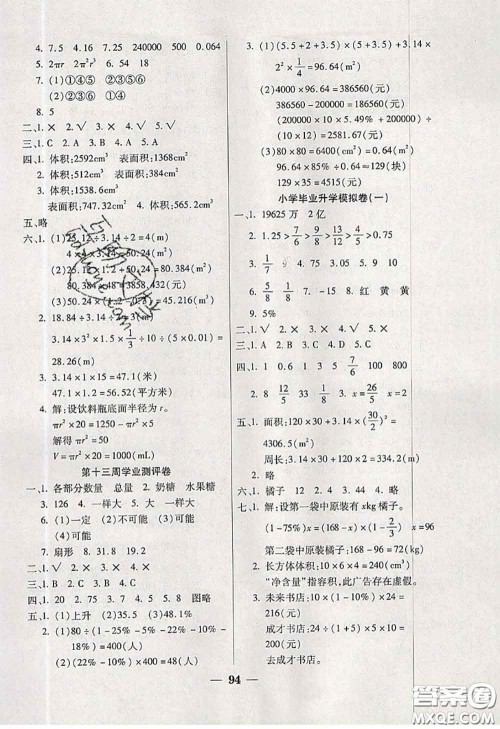 4. 7.5 4.16 7.25 240000 500 0.064
5. 2πr 2π²r³ 6. 25
7. (1)①④⑤ ②③⑤⑥
(2)②③⑥ ①④
8. 5
二、1. × 2. √ 3. × 4. √ 5. √
三、1. B 2. A 3. C 4. C 5. B
四、1. 体积:2592cm³ 表面积:1368cm²
2. 体积:1628cm³
3. 体积:1538.6cm³
表面积:747.32cm² 4. 体积:9252cm³
五、略
六、1. (1)25.12÷3.14÷2=4(m)
(2)25.12×1.2+50.24=80.384(m²)
80.3848×48=3858.432(元)
(3)50.24×(1.2-0.3)=45.216(m³)
2. 18.84÷3.14÷2=3(m)
3.14×3²×1.5×1/3÷10÷(5×0.01)=
28.26(m)
3. 3.14×15=47.1(米)
47.1×1.2=56.52(平方米)
4. 解:设饮料瓶底面半径为r。
πr²×20-πr²×5=750
解得 πr²=50
V=πr²×20=1000(mL)
第十三周学业测评卷
一、1. 各部分数量 总量 2. 奶糖 水果糖
3. 126 4. 一样大 5. 大 一样大
6. (1)一定 (2)不可能 (3)可能
(4)可能
7. 扇形 8. 2 4 3
二、1. √ 2. × 3. √ 4. √ 5. ×
三、1. B 2. B 3. C 4. B 5. C
四、1. 20 2~4. 略 5. 8 图略
五、1. (1)上升 (2)35.5 (3)48.1%
2. (1)80÷(1-22%-22%-10%-
18%-8%)=400(本)
(2)(22%-10%)×400=48(本)
3. (1)(5.5+2+3.5)×(5+3.5)+
2²×1/4=96.64(m²)
(2)4000×96.64=386560(元)
386560-200000=186560(元)
(200000×5.49%×10+200000)÷
(10×12)≈2581.67(元)
(3)80×80=6400(cm²)=0.64(m²)
96.64×85%÷0.64≈129(块)
129×35=4515(元)
小学毕业升学模拟卷(一)
一、1. 19625万 2亿
2. 1.25>7/6>13/12>5/5>0.71
3. 1/7 9 4. 0.75 5. 4.05
6. 5/8 1/8 7. 15 8. 红 黄 黄
9. 5%
二、1. √ 2. √ 3. × 4. × 5. ×
三、1. A 2. B 3. C 4. C 5. B
四、1. 1 0.6 1 3/5 100 800
2. 8 12/5 33/8 3. x=26/5 x=2
五、1. 面积:120×30+3.14×(30/2)²=
4306.5(m²)
周长:3.14×30+120×2=334.2(m)
2~3. 略
六、1. 橘子 2. 略 3. 略 4. 略
七、1. 解:设第一袋中原装有xkg橘子。
(1-75%)x=(168-x)×(1-2/3) x=96
第二袋中原装橘子:168-96=72(kg)
2. 长方体体积:10×6×4=240(cm³)
“净含量”指容积,此广告存在虚假。
3. 未来书店:10×(1-10%)×24=
216(元)
成才书店:24÷(1+5)×5×10=
200(元)
去成才书店。
94
答案圈
MXQE.COM